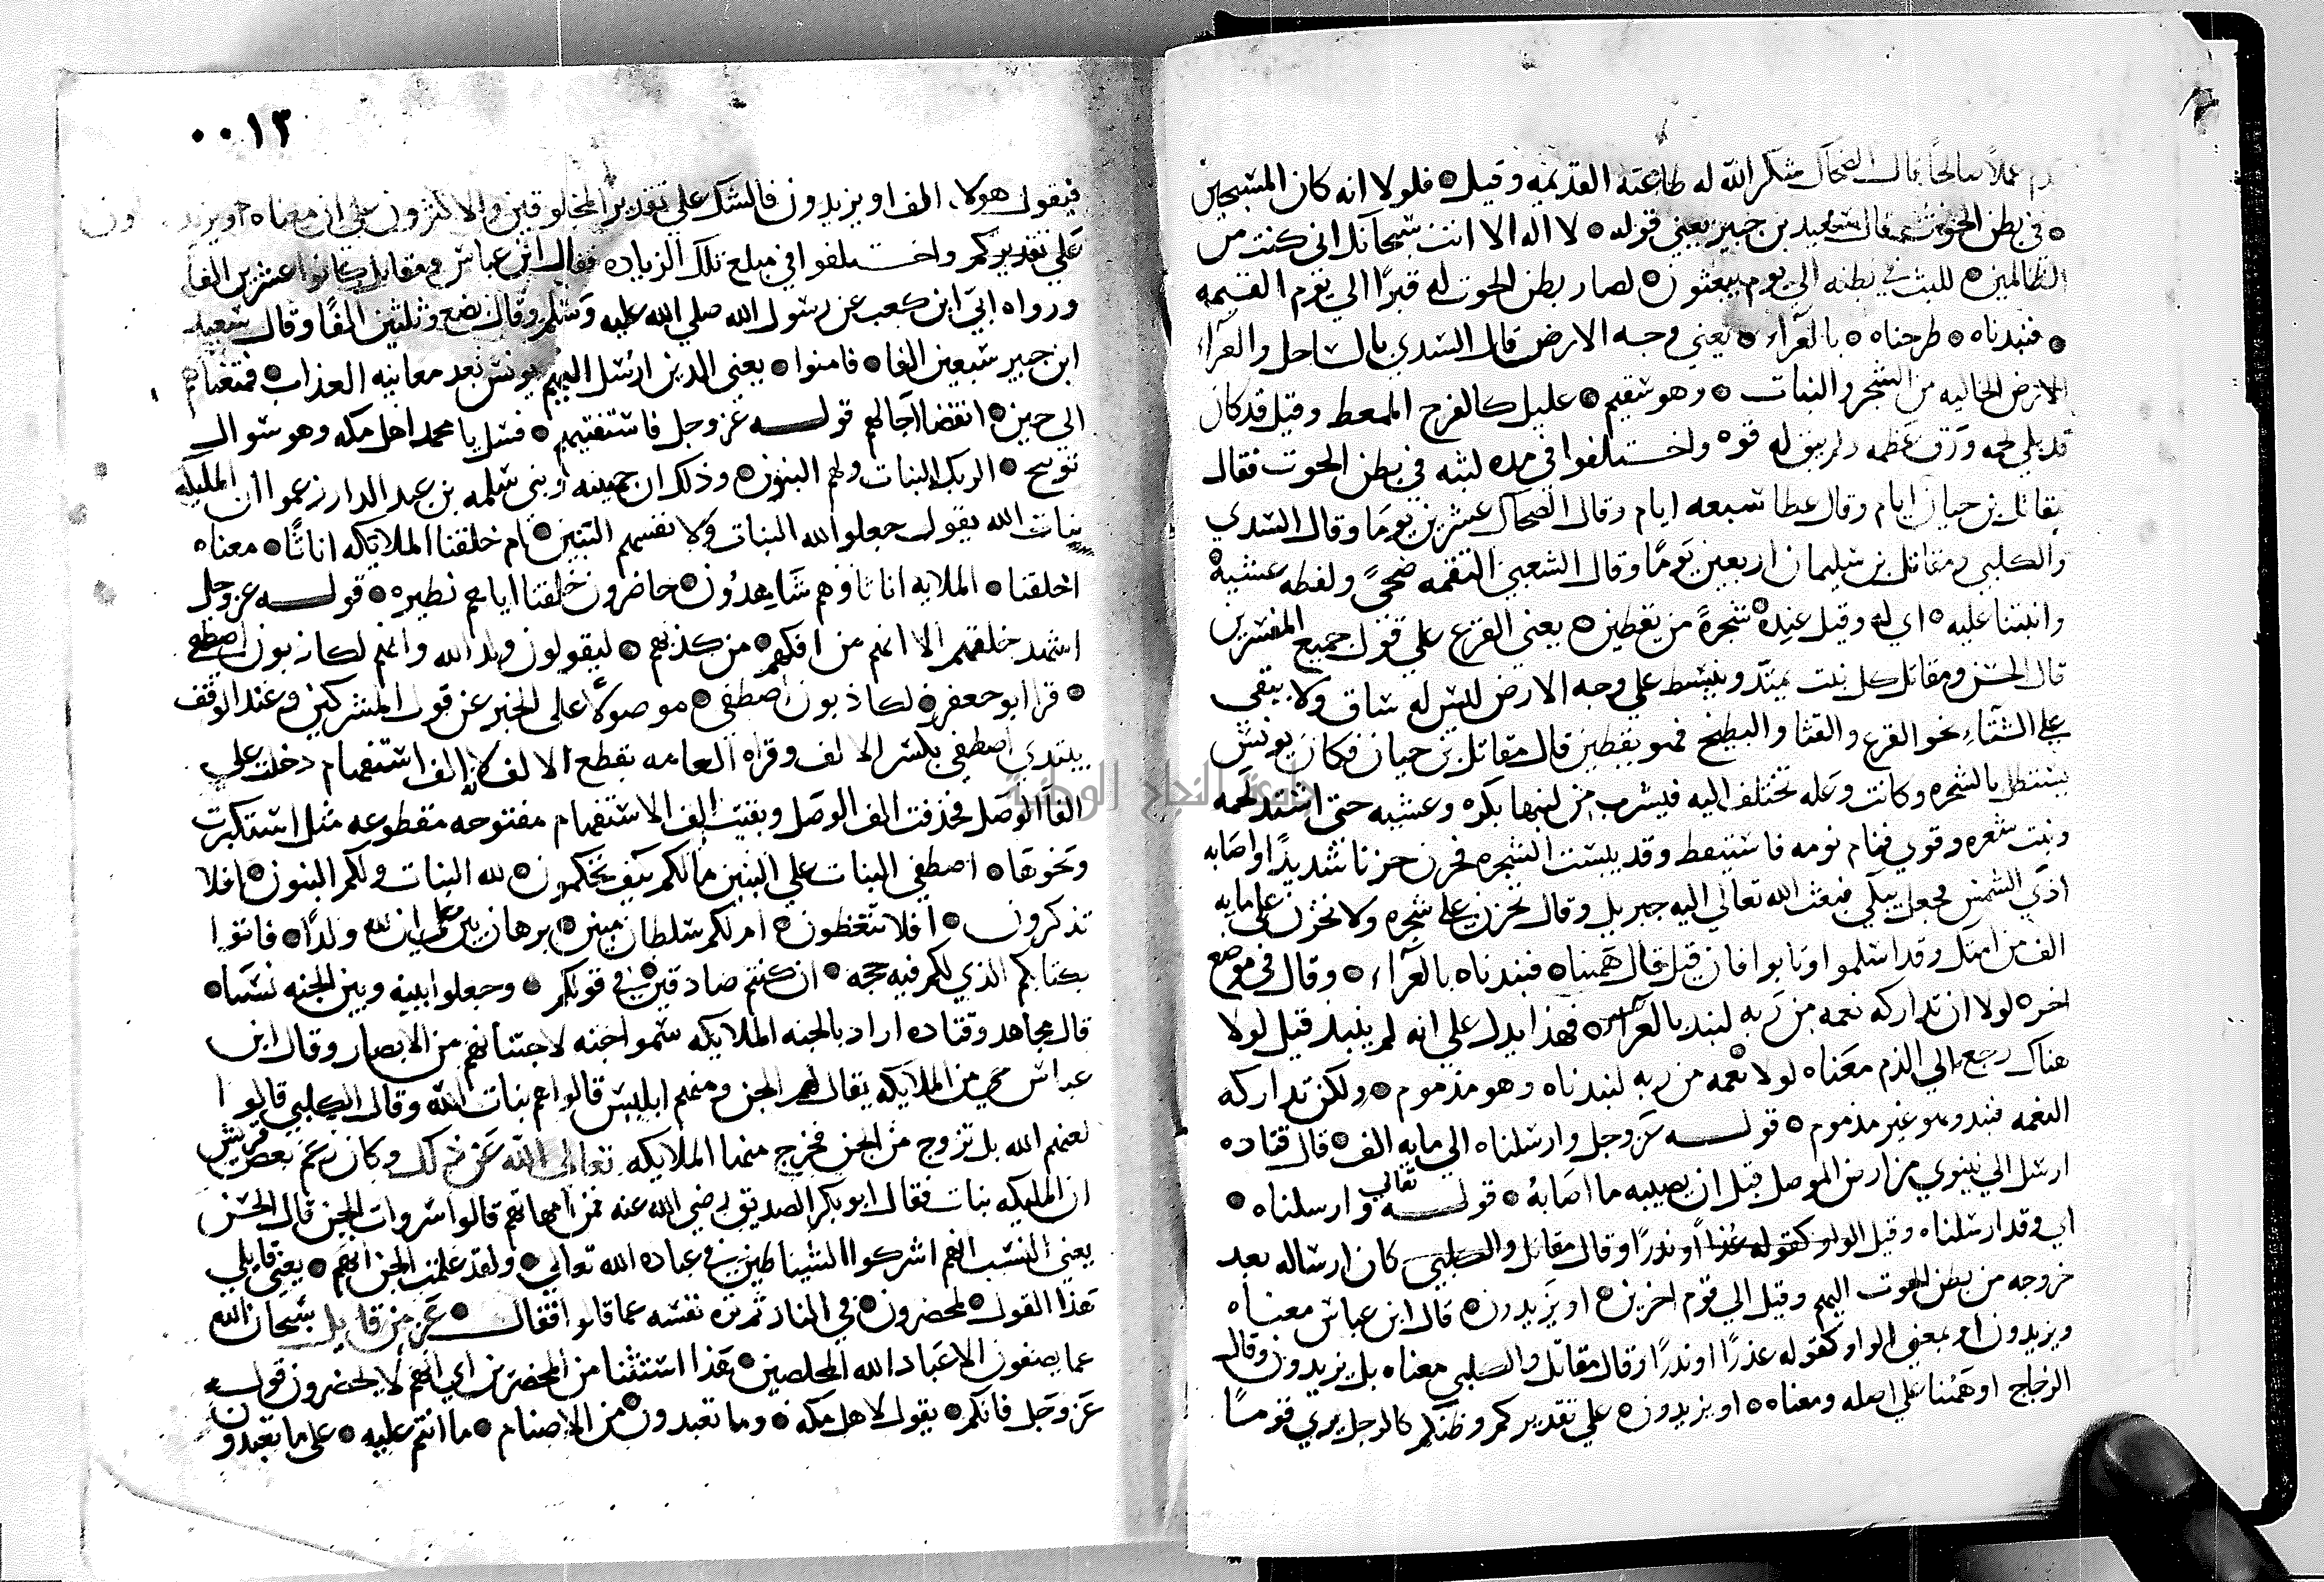 عملا صالحا قال الضحاك شكر الله له طاعته القديمه وقيل ۞ فلولا انه كان من المسبحين
۞ في بطن الحوت قال سعيد بن جبير يعني قوله ۞ لا اله الا انت سبحانك اني كنت من
الظالمين ۞ للبث في بطنه الي يوم يبعثون ۞ لصار بطن الحوت له قبرا الي يوم القيمه
۞ فنبذناه ۞ طرحناه ۞ بالعرآء ۞ يعني وجه الارض قال السدي بالساحل والعرآء
الارض الخاليه من الشجر والنبات ۞ وهو سقيم ۞ عليل كالفرخ الممعط وقيل قد كان
قد بلي لحمه ورق عظمه ولم يبق له قوه واختلفوا في مده لبثه في بطن الحوت فقال
مقاتل بن حيان ايام وقال عطا سبعه ايام وقال الضحاك عشرين يوما وقال السدي
والكلبي ومقاتل بن سليمان اربعين يوما وقال الشعبي التقمه ضحي ولفظه عشيه ۞
وانبتنا عليه ۞ اي له وقيل عنده ۞ شجرة من يقطين ۞ يعني القرع علي قول جميع المفسرين
قال الحسن ومقاتل كل نبت يمتد وينبسط علي وجه الارض ليس له ساق ولا يبقي
علي الشتآء نحو القرع والقثا والبطيخ فهو يقطين قال مقاتل بن حيان فكان يونس
يستظل بالشجره وكانت وعله تختلف اليه فيشرب من لبنها بكره وعشيه حتي اشتد لحمه
ونبت شعره وقوي فنام نومه فاستيقظ وقد يبست الشجره فحزن حزنا شديدا واصابه
اذي الشمس فجعل يبكي فبعث الله تعالي اليه جبريل وقال تحزن علي شجره ولا تحزن علي مايه
الف من امتك وقد اسلموا وتابوا فان قيل قال ههنا ۞ فنبذناه بالعرآء ۞ وقال في موضع
اخر ۞ لولا ان تداركه نعمه من ربه لنبذ بالعرآء ۞ فهذا يدل علي انه لم ينبذ قيل لولا
هناك رجع الي الذم معناه لولا نعمه من ربه لنبذناه وهو مذموم ۞ ولكن تداركه
النعمه فنبذ وهو غير مذموم ۞ قوله عز وجل وارسلناه الي مايه الف ۞ قال قتاده
ارسل الي نينوي من ارض الموصل قبل ان يصيبه ما اصابه ۞ قوله تعالي وارسلناه ۞
اي وقد ارسلناه وقيل الواو كقوله عذرا او نذرا وقال مقاتل والكلبي كان ارساله بعد
خروجه من بطن الحوت اليهم وقيل الي قوم اخرين ۞ او يزيدون ۞ قال ابن عباس معناه
ويزيدون او بمعني الواو كقوله عذرا او نذرا وقال مقاتل والكلبي معناه بل يزيدون وقال
الزجاج او ههنا علي اصله ومعناه ۞ او يزيدون ۞ علي تقديركم وظنكم كالرجل يري قوما
٠٠١٣
فيقول هولاء الف او يزيدون فالشك علي تقدير المخلوقين والاكثرون علي ان معناه ويزيدون
علي تقديركم واختلفوا في مبلغ تلك الزياده فقال ابن عباس ومقاتل كانوا عشرين الفا
ورواه ابي ابن كعب عن رسول الله صلي الله عليه وسلم وقال بضع وثلثين الفا وقال سعيد
ابن جبير سبعين الفا ۞ فامنوا ۞ يعني الذين ارسل اليهم يونس بعد معاينه العذاب ۞ فمتعناهم
الي حين ۞ انقضا اجالهم قوله عز وجل فاستفتهم ۞ فسل يا محمد اهل مكه وهو سوال
توبيخ ۞ الربك البنات ولهم البنون ۞ وذلك ان جهينه وبني سلمه بن عبد الدار زعموا ان المليكه
بنات الله يقول جعلوا لله البنات ولانفسهم البنين ۞ ام خلقنا الملايكه اناثا ۞ معناه
اخلقنا ۞ الملايه اناثا وهم شاهدون ۞ حاضرون خلقنا اياهم نظيره ۞ قوله عز وجل
اشهدوا خلقهم الا انهم من افكهم ۞ من كذبهم ۞ ليقولون ولد الله وانهم لكاذبون اصطفي
۞ قرا ابو جعفر ۞ لكاذبون اصطفي ۞ موصولا علي الخبر عن قول المشركين وعند الوقف
يبتدي اصطفي بكسر الالف وقراه العامه بقطع الالف لانه الف استفهام دخلت علي
الف الوصل فحذفت الف الوصل وبقيت الف الاستفهام مفتوحه مقطوعه مثل استكبرت
ونحوها ۞ اصطفي البنات علي البنين مالكم كيف تحكمون ۞ لله البنات ولكم البنون ۞ افلا
تذكرون ۞ افلا تتعظون ۞ ام لكم سلطان مبين ۞ برهان بين علي ان لله ولدا ۞ فاتوا
بكتابكم الذي لكم فيه حجه ۞ ان كنتم صادقين ۞ في قولكم ۞ وجعلوا بينه وبين الجنه نسبا ۞
قال مجاهد وقتاده اراد بالجنه الملايكه سموا جنه لاجتنانهم من الابصار وقال ابن
عباس حي من الملايكه يقال لهم الجن ومنهم ابليس قالوا هم بنات الله وقال الكلبي قالوا
لعنهم الله بل تزوج من الجن فخرج منها الملايكه تعالي الله عن ذلك وكان زعم بعض قريش
ان المليكه بنات فقال ابو بكر الصديق رضي الله عنه فمن امهاتهم قالوا سروات الجن قال الحسن
يعني النسب انهم اشركوا الشياطين في عباده الله تعالي ۞ ولقد علمت الجن انهم ۞ يعني قايلي
هذا القول ۞ لمحضرون ۞ في النار ثم نزه نفسه عما قالوا فقال ۞ عز من قايل سبحان الله
عما يصفون الا عباد الله المخلصين ۞ هذا استثنا من المحضرين اي انهم لا يحضرون قوله
عز وجل فانكم ۞ يقول لاهل مكه ۞ وما تعبدون ۞ من الاصنام ۞ ما انتم عليه ۞ علي ما تعبدون